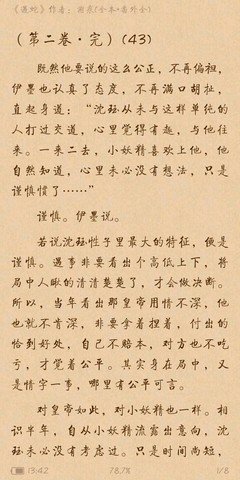 《遇蛇》作者：溯痕(全本+番外全)
(第二卷·完) (43)
既然他要说的这么公正，不再偏袒，
伊墨也认真了态度，不再满口胡扯，
直起身道：“沈珏从未与这样单纯的
人打过交道，心里觉得有趣，与他往
来。一来二去，小妖精喜欢上他，他
自然知道，心里未必没有想法，只是
谨慎惯了……”
谨慎。伊墨说。
若说沈珏性子里最大的特征，便是
谨慎。遇事非要看出个高低上下，将
局中人瞅的清清楚楚了，才会做决断。
所以，当年看出那皇帝用情不深，他
也就不肯深，非要拿着捏着，付出的
恰到好处，自己不赔本，对方也不吃
亏，才觉着公平。其实身在局中，又
是情字一事，哪里有公平可言。
对皇帝如此，对小妖精也一样。相
识半年，自从小妖精流露出意向，沈
珏未必没有考虑过。只是时间尚短，
13:42
78.7%
1/8